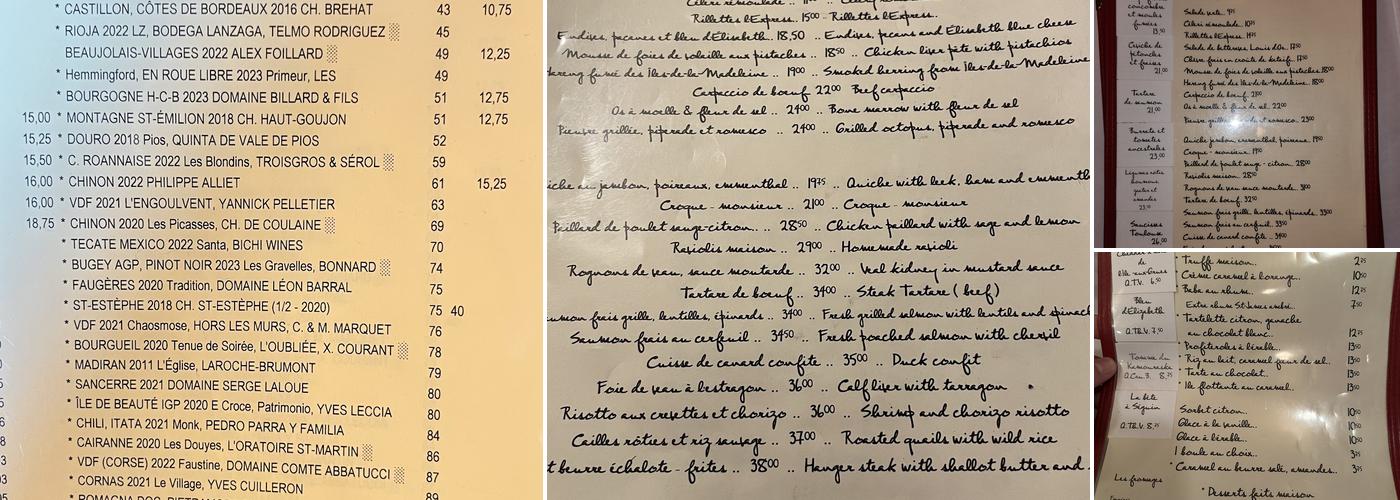 * CASTILLON, CÔTES DE BORDEAUX 2016 CH. BREHAT 43 10,75
* RIOJA 2022 LZ, BODEGA LANZAGA, TELMO RODRIGUEZ 45
BEAUJOLAIS-VILLAGES 2022 ALEX FOILLARD 49 12,25
* Hemmingford, EN ROUE LIBRE 2023 Primeur, LES 49
* BOURGOGNE H-C-B 2023 DOMAINE BILLARD & FILS 51 12,75
15,00 * MONTAGNE ST-ÉMILION 2018 CH. HAUT-GOUJON 51 12,75
15,25 * DOURO 2018 Pios, QUINTA DE VALE DE PIOS 52
15,50 * C. ROANNAISE 2022 Les Blondins, TROISGROS & SÉROL 59
16,00 * CHINON 2022 PHILIPPE ALLIET 61 15,25
16,00 * VDF 2021 L'ENGOULVENT, YANNICK PELLETIER 63
18,75 * CHINON 2020 Les Picasses, CH. DE COULAINE 69
* TECATE MEXICO 2022 Santa, BICHI WINES 70
* BUGEY AGP, PINOT NOIR 2023 Les Gravelles, BONNARD 74
* FAUGÈRES 2020 Tradition, DOMAINE LÉON BARRAL 75
* ST-ESTÈPHE 2018 CH. ST-ESTÈPHE (1/2 - 2020) 75 40
* VDF 2021 Chaosmose, HORS LES MURS, C. & M. MARQUET 76
* BOURGUEIL 2020 Tenue de Soirée, L'OUBLIÉE, X. COURANT 78
* MADIRAN 2011 L'Église, LAROCHE-BRUMONT 79
* SANCERRE 2021 DOMAINE SERGE LALOUE 80
* ÎLE DE BEAUTÉ IGP 2020 E Croce, Patrimonio, YVES LECCIA 80
* CHILI, ITATA 2021 Monk, PEDRO PARRA Y FAMILIA 84
* CAIRANNE 2020 Les Douyes, L'ORATOIRE ST-MARTIN 86
* VDF (CORSE) 2022 Faustine, DOMAINE COMTE ABBATUCCI 87
* CORNAS 2021 Le Village, YVES CUILLERON 89
Rillettes L'Express. 15.00 - Rillettes L'Express.
Endives, pacanes et bleu d'Elisabeth. 18,50 .. Endives, pecans and Elisabeth blue cheese
Mousse de foies de volaille aux pistaches .. 18.50 .. Chicken liver pâté with pistachios
Hareng fumé des Iles-de-la-Madeleine .. 19.00 .. Smoked herring from Iles-de-la-Madeleine
Carpaccio de bœuf. 22.00 Beef carpaccio
Os à moelle & fleur de sel .. 24.00 .. Bone marrow with fleur de sel
Pieuvre grillée, piperade et romesco .. 24.00 .. Grilled octopus, piperade and romesco
au jambon, poireaux, emmenthal .. 19.75 .. Quiche with leek, ham and
Croque-monsieur .. 21.00 .. Croque-monsieur
Paillard de poulet sauge-citron... 28.50 .. Chicken paillard with sage and lemon
Raviolis maison .. 29.00 .. Homemade ravioli
Rognons de veau, sauce moutarde .. 32.00 .. Veal kidney in mustard sauce
Tartare de bœuf .. 34.00 .. Steak Tartare (beef)
frais grillé, lentilles, épinards .. 34.00 .. Fresh grilled salmon with lentils and
Saumon frais au cerfeuil .. 34.50 .. Fresh poached salmon with chervil
Cuisse de canard confite .. 35.00 .. Duck confit
Foie de veau à l'estragon .. 36.00 .. Calf liver with tarragon
Risotto aux crevettes et chorizo .. 36.00 .. Shrimp and chorizo risotto
Cailles rôties et riz sauvage .. 37.00 .. Roasted quails with wild rice
beurre échalote - frites .. 38.00 .. Hanger steak with shallot butter and
concombre
et moules
fumées
13,50
Ceviche de
pétoncles
et fraises
21,00
Tartare
de saumon
21,00
Burrata et
tomates
ancestrales
23,00
Saucisse
Toulouse
26,00
Salade verte. 9.75
Céleri rémoulade. 10.75
Rillettes L'Express. 14.75
Mousse de foies de volaille aux pistaches. 18.00
Hareng fumé des Iles-de-la-Madeleine. 18.00
Carpaccio de bœuf. 21.00
Os à moelle & fleur de sel .. 22.00
Quiche jambon, emmenthal, poireaux. 19.50
Croque-monsieur. 19.50
Paillard de poulet sauge-citron. 28.00
Raviolis maison. 28.50
Rognons de veau sauce moutarde.
Tartare de bœuf. 32.50
Saumon frais grillé, lentilles, épinards. 33.00
Saumon frais au cerfeuil. 33.50
Cuisse de canard confite .. 34.00
Bleu
d'Elizabeth
Q.TB.V. 7,50
Tomme du
Kamouraska
La bête
à Séguin
Q.TB.V. 8,75
* Truffe maison.. 2.75
* Crème caramel à l'orange.. 10.50
* Baba au rhum.. 12.75
Extra rhum St-James ambré.. 7.50
* Tartelette citron, ganache
au chocolat blanc.. 12.75
* Profiteroles à l'érable.. 13.50
* Riz au lait, caramel fleur de sel.. 13.50
* Tarte au chocolat.. 13.50
* Ile flottante au caramel.. 13.50
Sorbet citron.. 10.50
Glace à la vanille.. 10.50
Glace à l'érable.. 10.50
1 boule au choix.. 3.75
* Caramel au beurre salé, amandes.. 3.75
Les fromages
* Desserts faits maison